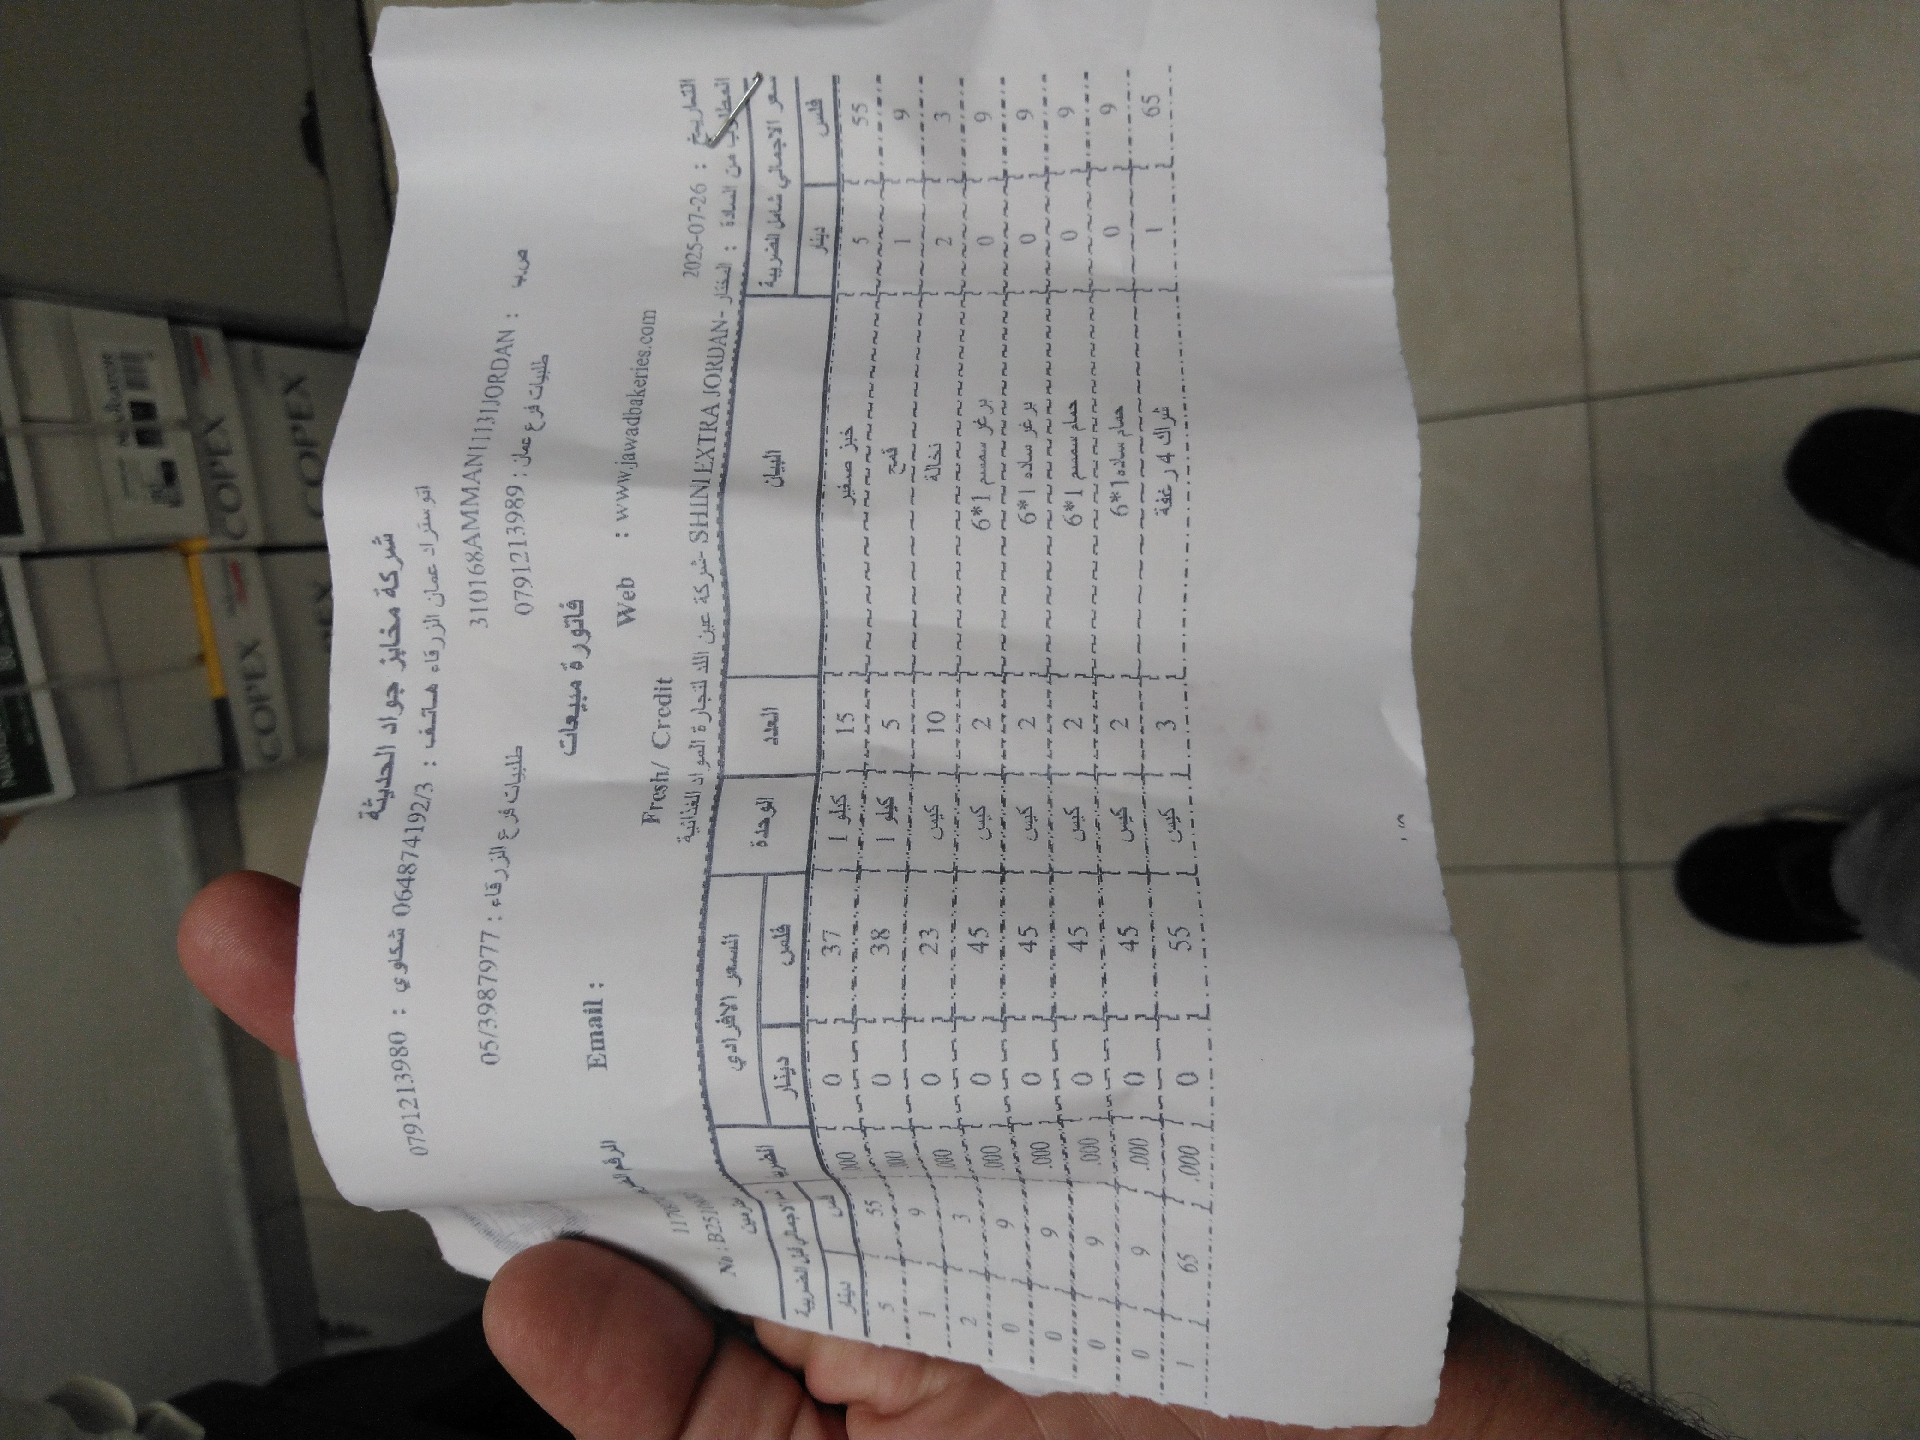 شركة مخابز جواد الحديثة
اتوستراد عمان الزرقاء هاتف : 064874192/3 شكاوي : 0791213980
310168AMMAN11131JORDAN : ص.ب
طلبيات فرع عمان : 0791213989 طلبيات فرع الزرقاء : 05/3987977
فاتورة مبيعات
Web : www.jawadbakeries.com Email :
Fresh/ Credit
التاريخ : 2025-07-26
المطلوب من السادة : المختار -SHINI EXTRA JORDAN -شركة عين اللد لتجارة المواد الغذائية
السعر الاجمالي شامل الضريبة البيان العدد الوحدة السعر الافرادي
دينار فلس دينار فلس دينار فلس
5 55 خبز صغير 15 كيلو 1 37 0 .000 55 5
1 9 قمح 5 كيلو 1 38 0 .000 9 1
2 3 نخالة 10 كيس 23 0 .000 3 2
0 9 برغر سمسم 1*6 2 كيس 45 0 .000 9 0
0 9 برغر ساده 1*6 2 كيس 45 0 .000 9 0
0 9 حمام سمسم 1*6 2 كيس 45 0 .000 9 0
0 9 حمام ساده 1*6 2 كيس 45 0 .000 9 0
1 65 شراك 4 رغفة 3 كيس 55 0 .000 65 1
COPEX
COPEX
COPEX
COPEX